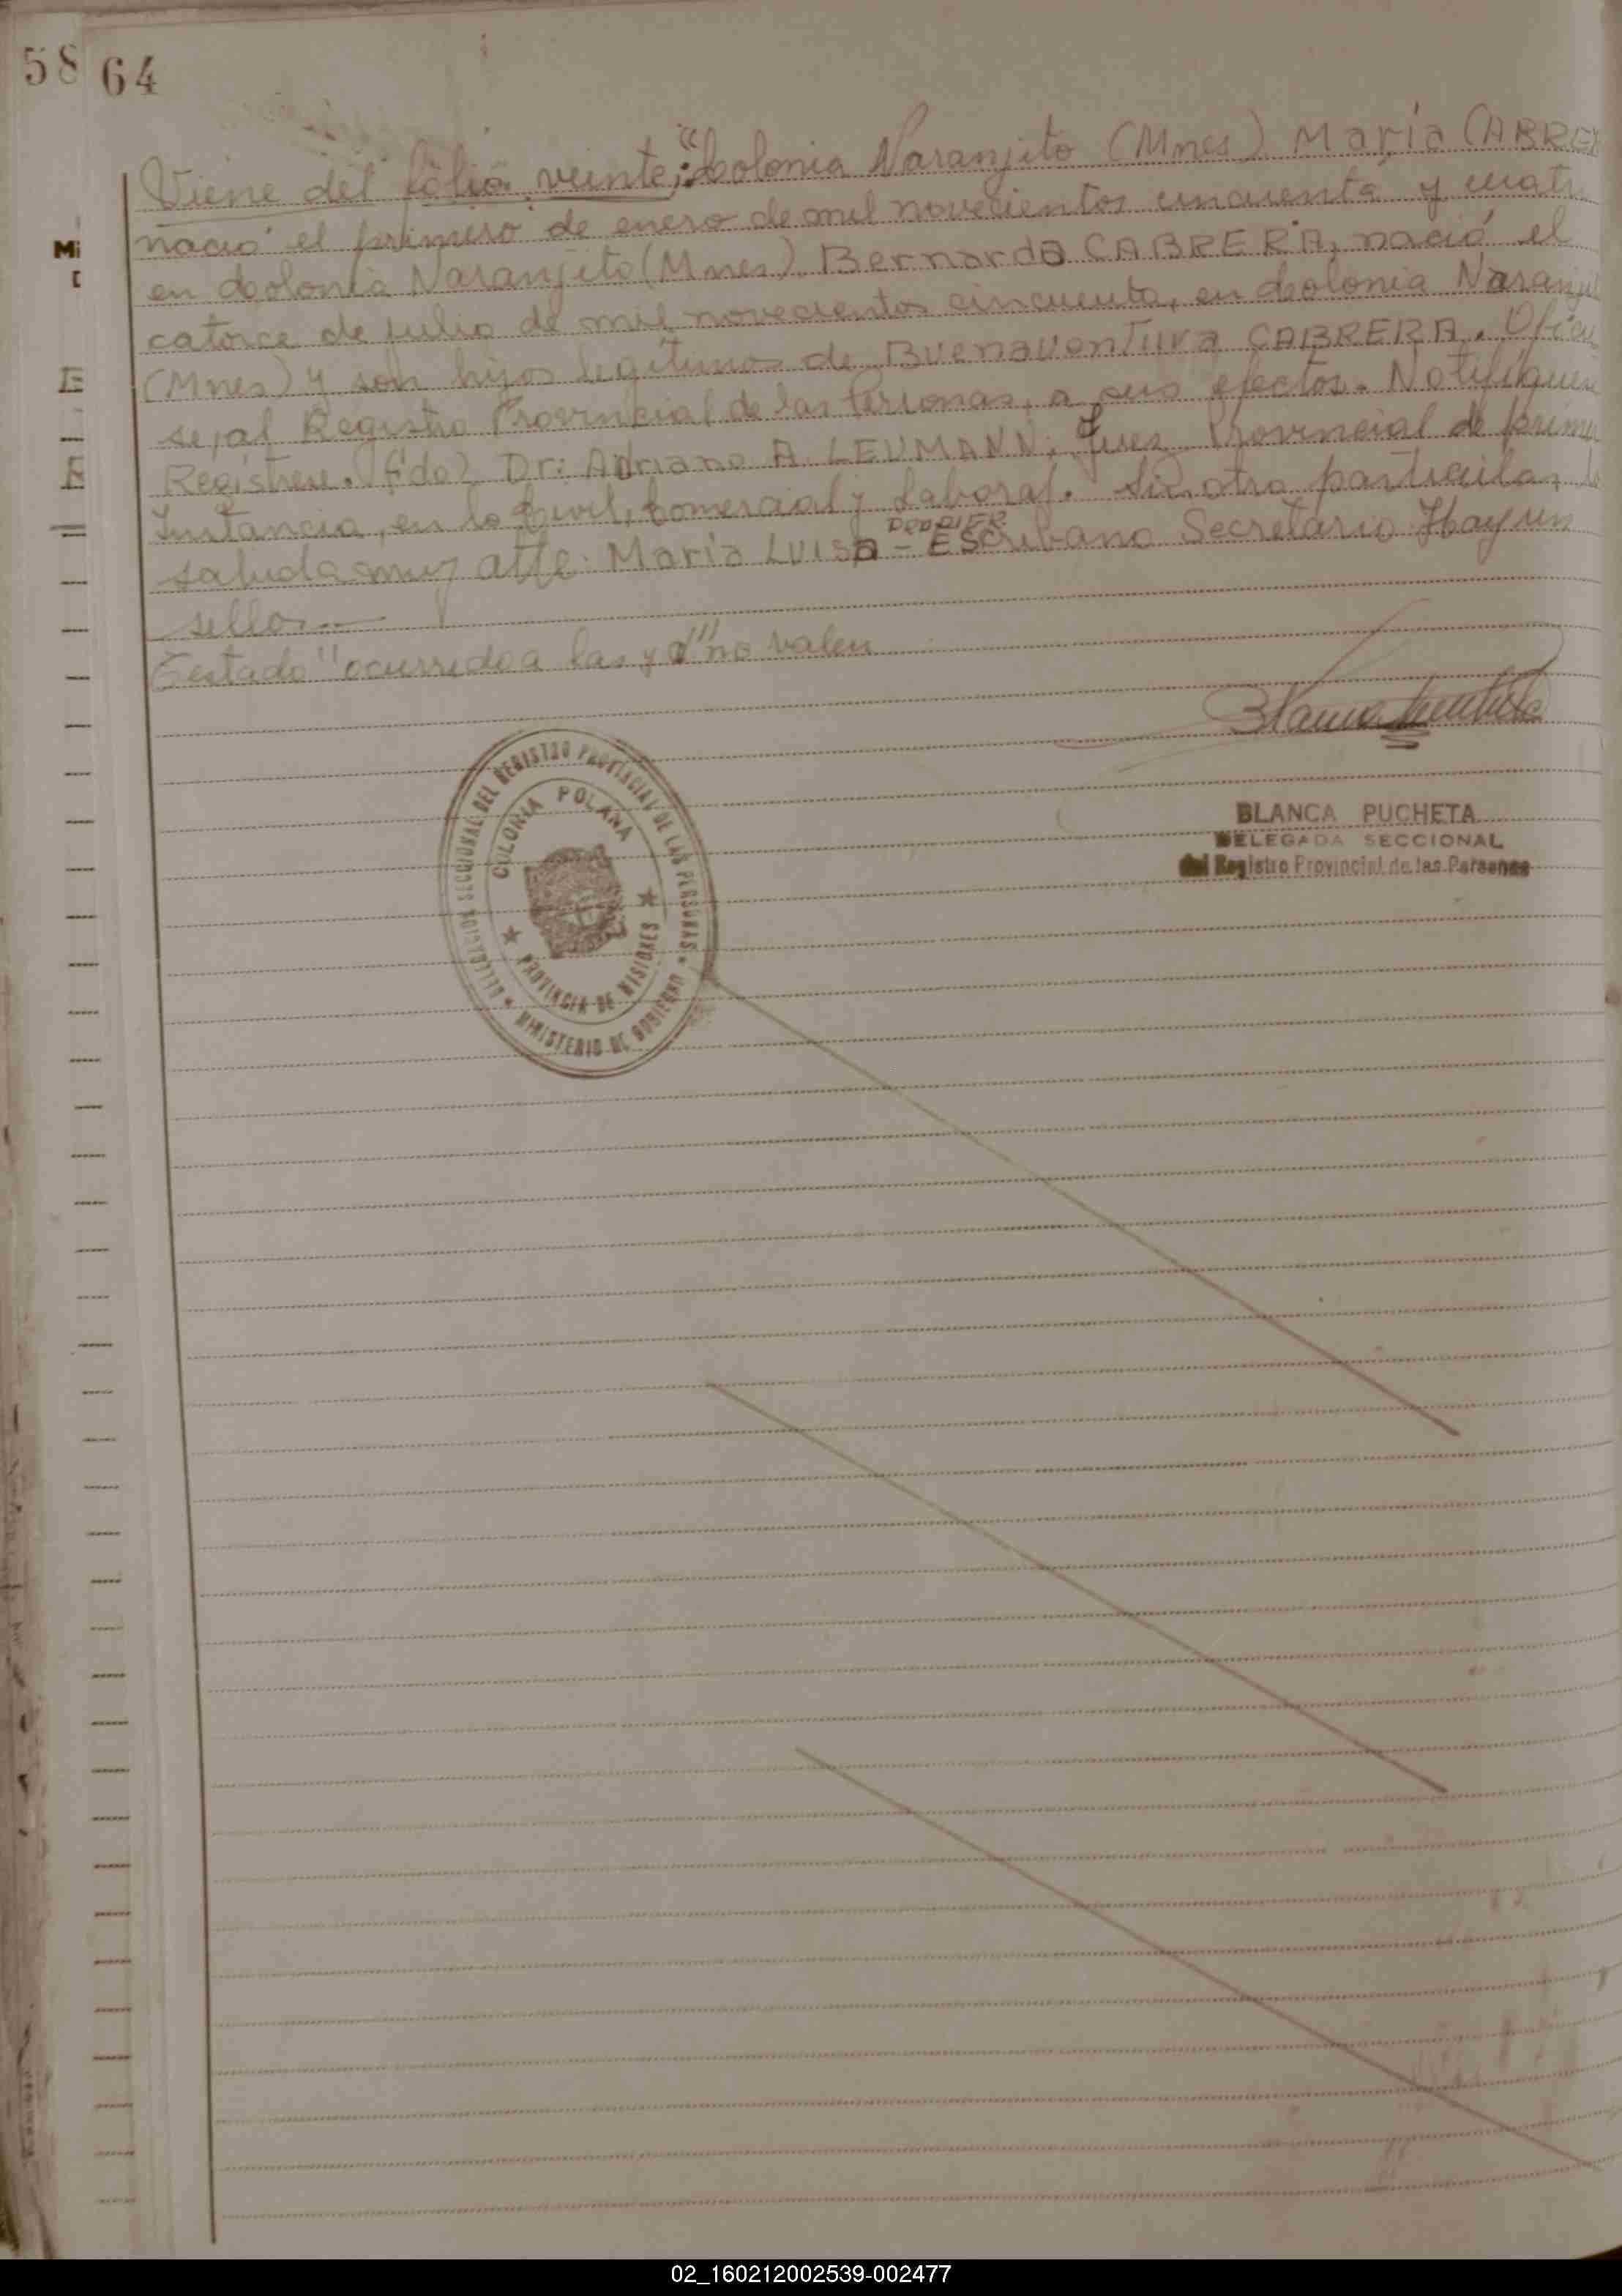 58 64
Viene del folio veinte; "Colonia Naranjito (Mnes) María CABRE
nació el primero de enero de mil novecientos cincuenta y cuatro
en Colonia Naranjito (Mnes) Bernarda CABRERA, nació el
catorce de julio de mil novecientos cincuenta, en Colonia Naranji
(Mnes) y son hijos legítimos de Buenaventura CABRERA. Ofície
se, al Registro Provincial de las Personas, a sus efectos. Notifíquese
Regístrese. (Fdo) Dr: Adriano A. LEUMANN, Juez Provincial de prime
Instancia, en lo Civil, Comercial y Laboral. Sin otro particular, lo
saluda muy atte. María Luisa - Escribano Secretario Hay un
sello.
Testado "ocurrido a las y a" no valen
BLANCA PUCHETA
DELEGADA SECCIONAL
del Registro Provincial de las Personas
DELEGACION SECCIONAL DEL REGISTRO PROVINCIAL DE LAS PERSONAS
COLONIA POLANA
PROVINCIA DE MISIONES
MINISTERIO DE GOBIERNO
02_160212002539-002477